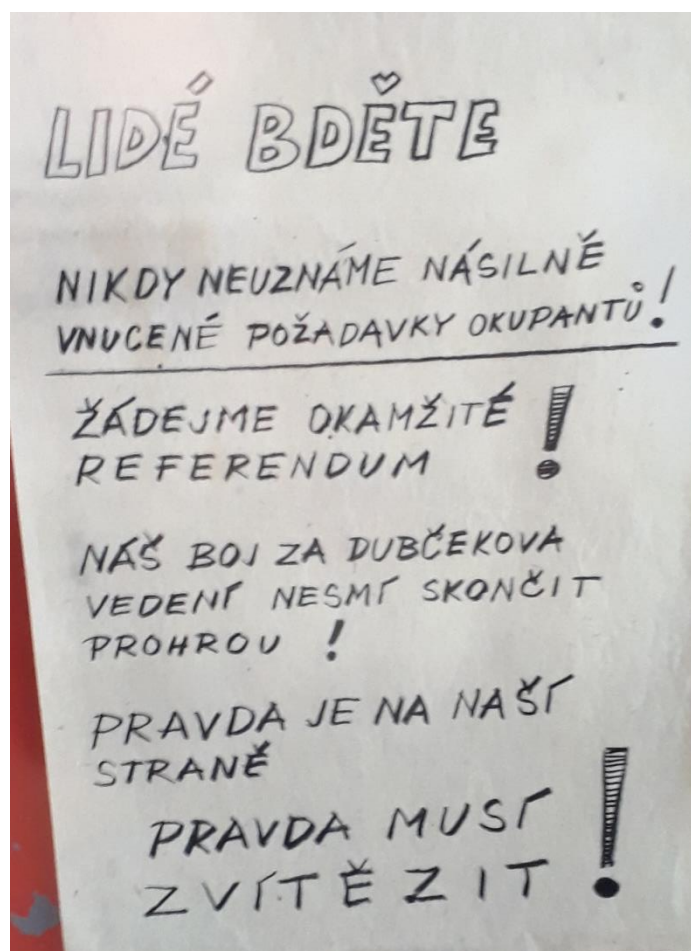 LIDÉ BDĚTE
NIKDY NEUZNÁME NÁSILNĚ
VNUCENÉ POŽADAVKY OKUPANTŮ!
ŽÁDEJME OKAMŽITÉ !
REFERENDUM
NÁŠ BOJ ZA DUBČEKOVA
VEDENÍ NESMÍ SKONČIT
PROHROU !
PRAVDA JE NA NAŠÍ
STRANĚ
PRAVDA MUSÍ
ZVÍTĚZIT !